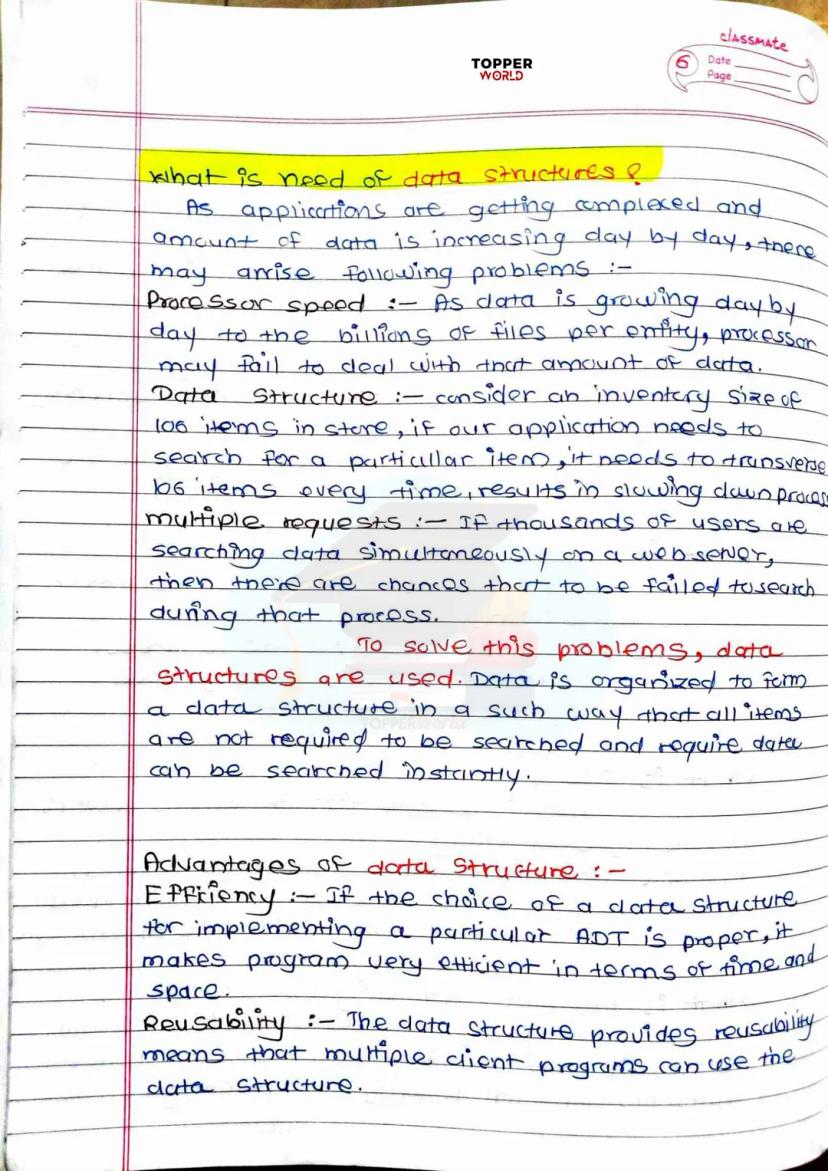 classmate
TOPPER
WORLD
6
Date
Page
What is need of data structures?
As applications are getting complexed and
amount of data is increasing day by day, there
may arrise following problems :-
Processor speed :- As data is growing day by
day to the billions of files per entity, processor
may fail to deal with that amount of data.
Data Structure :- consider an inventory size of
106 items in store, if our application needs to
search for a particular item, it needs to transverse
106 items every time, results in slowing down process
multiple requests :- If thousands of users are
searching data simultaneously on a web server,
then there are chances that to be failed to search
during that process.
To solve this problems, data
structures are used. Data is organized to form
a data structure in a such way that all items
are not required to be searched and require data
can be searched instantly.
TOPPER WORLD
Advantages of data structure :-
Efficiency :- If the choice of a data structure
for implementing a particular ADT is proper, it
makes program very efficient in terms of time and
space.
Reusability :- The data structure provides reusability
means that multiple client programs can use the
data structure.